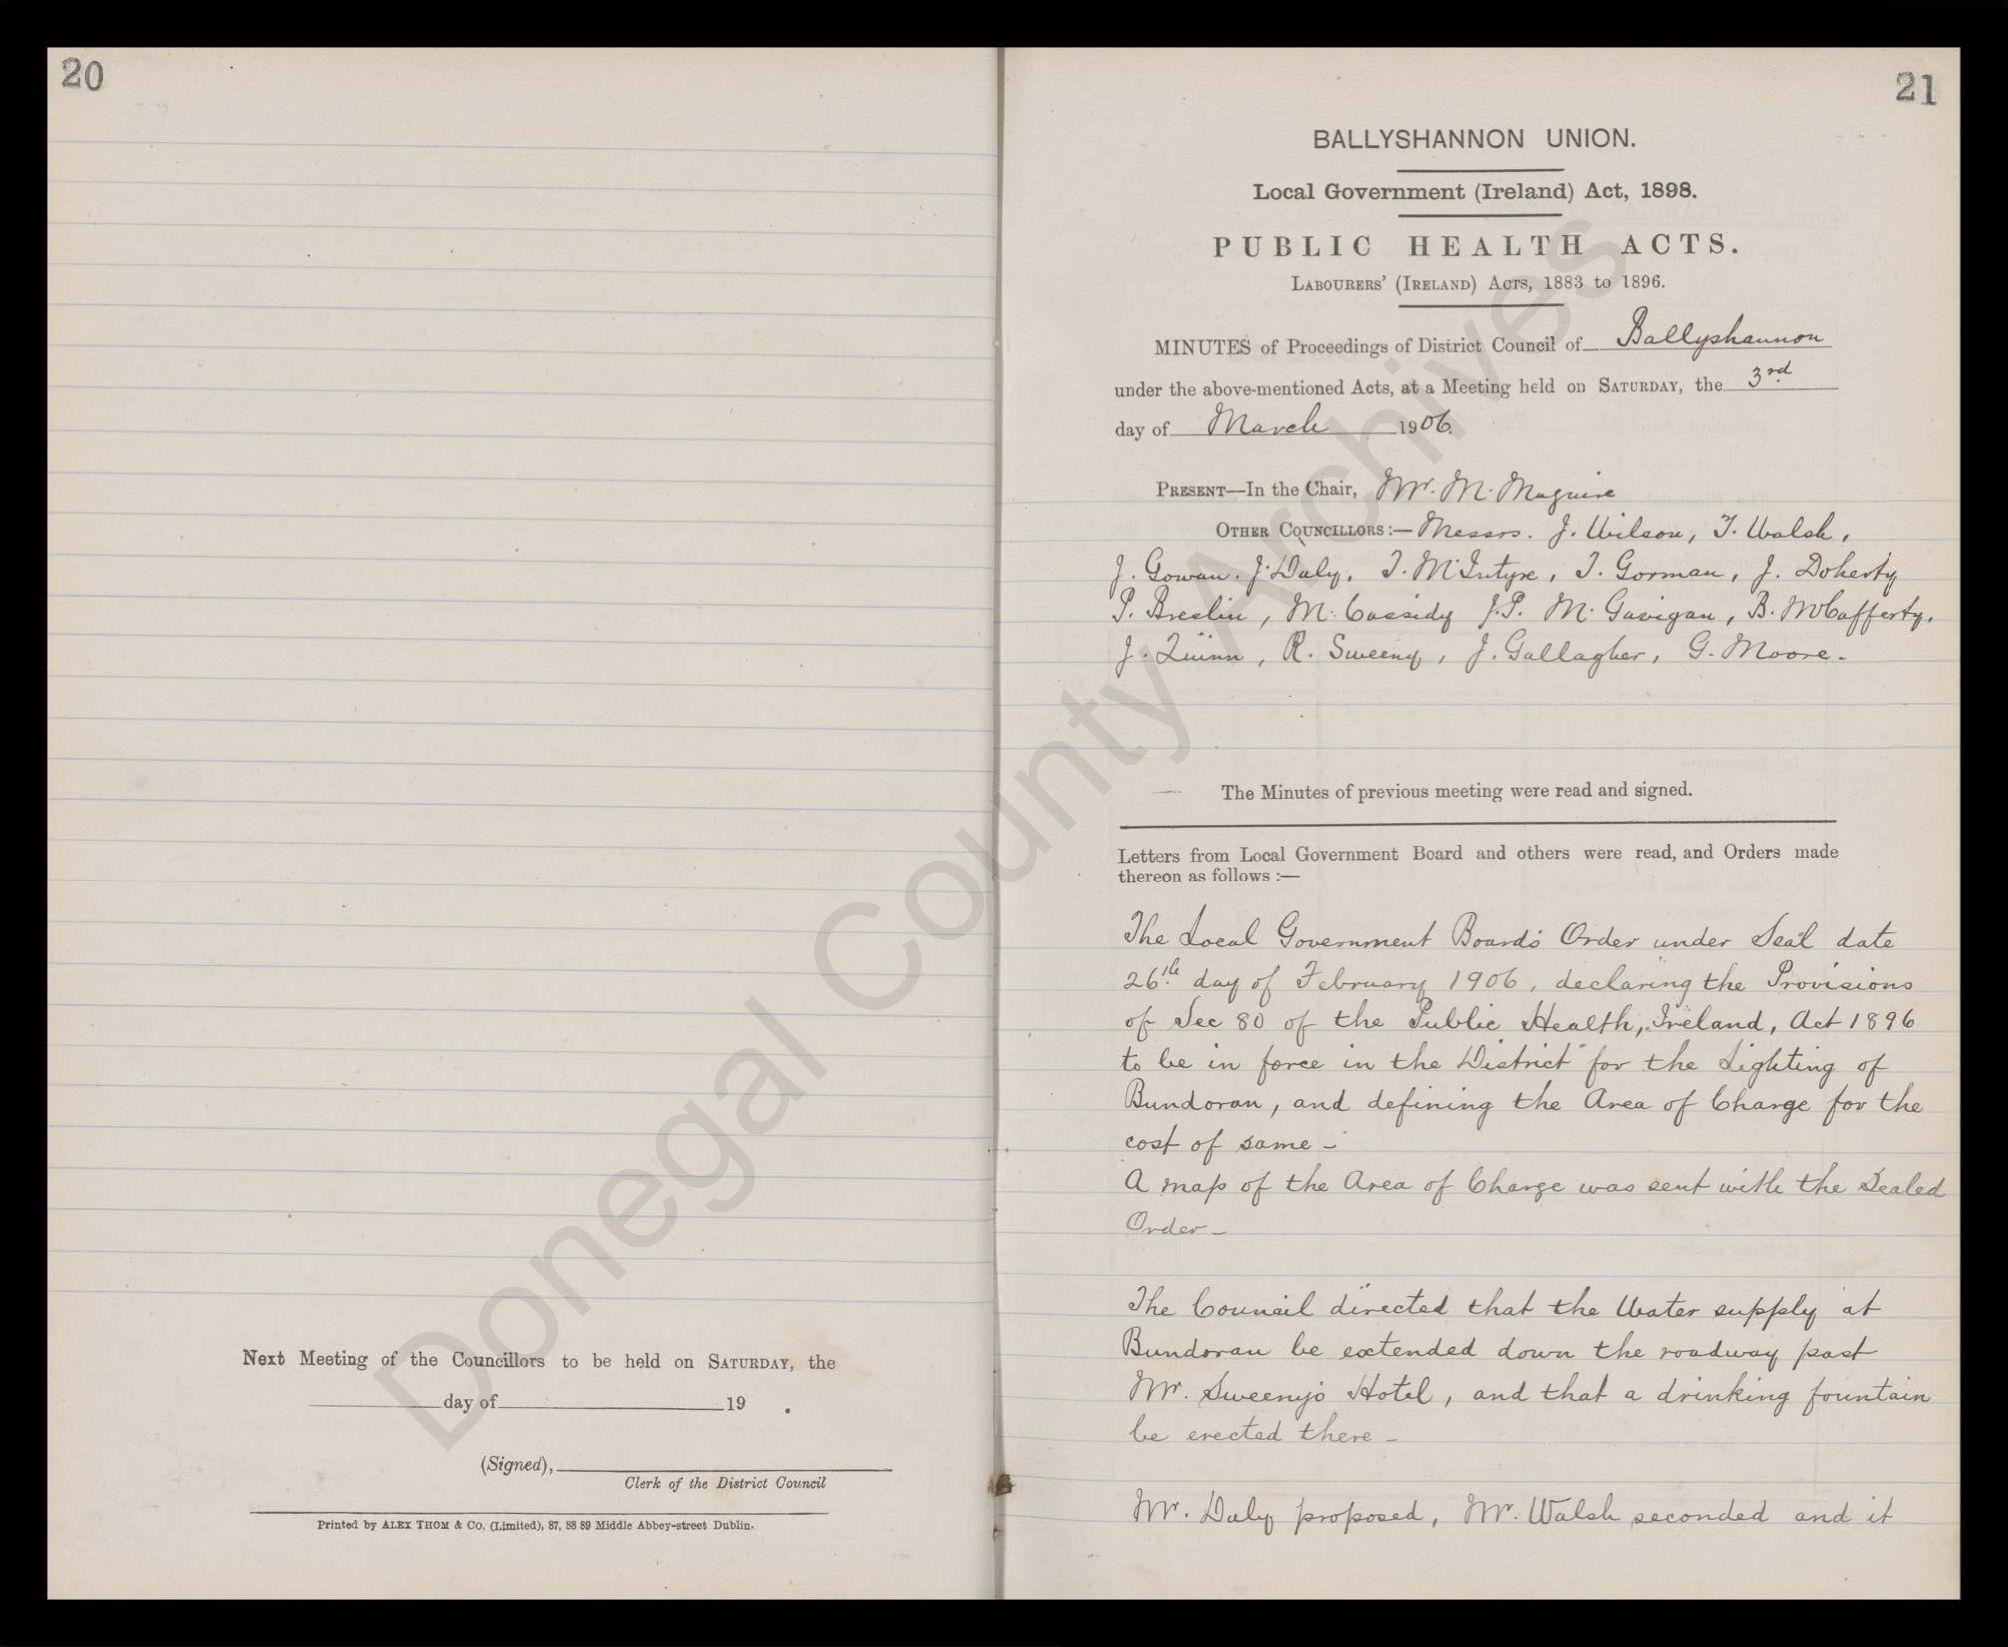 20
Next Meeting of the Councillors to be held on SATURDAY, the
day of 19 .
(Signed),
Clerk of the District Council
Printed by ALEX THOM & Co. (Limited), 87, 88 89 Middle Abbey-street Dublin.
21
BALLYSHANNON UNION.
Local Government (Ireland) Act, 1898.
PUBLIC HEALTH ACTS.
LABOURERS' (IRELAND) ACTS, 1883 to 1896.
MINUTES of Proceedings of District Council of Ballyshannon
under the above-mentioned Acts, at a Meeting held on SATURDAY, the 3rd
day of March 1906.
PRESENT—In the Chair, Mr. M. Maguire
OTHER COUNCILLORS:— Messrs. J. Wilson, T. Walsh,
J. Gowan. J. Daly. T. McIntyre, T. Gorman, J. Doherty
P. Breslin, M. Cassidy J.P. M. Gavigan, B. McCafferty.
J. Quinn, R. Sweeny, J. Gallagher, G. Moore.
The Minutes of previous meeting were read and signed.
Letters from Local Government Board and others were read, and Orders made
thereon as follows :—
The Local Government Boards Order under Seal date
26th day of February 1906, declaring the Provisions
of Sec 80 of the Public Health, Ireland, Act 1896
to be in force in the District for the Lighting of
Bundoran, and defining the Area of Charge for the
cost of same -
A map of the Area of Charge was sent with the Sealed
Order -
The Council directed that the Water supply at
Bundoran be extended down the roadway past
Mr. Sweeny's Hotel, and that a drinking fountain
be erected there -
Mr. Daly proposed, Mr. Walsh seconded and it
Donegal County Archives